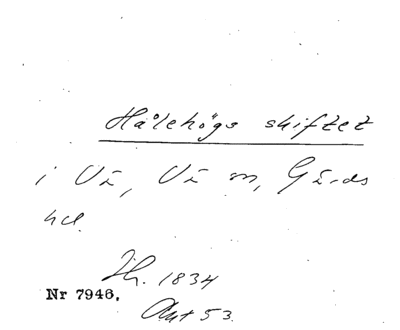 Hålehögs skiftet
i Vä, Vä sn, Gärds
hd.
Jh. 1834
Nr 7946.
Akt 53.